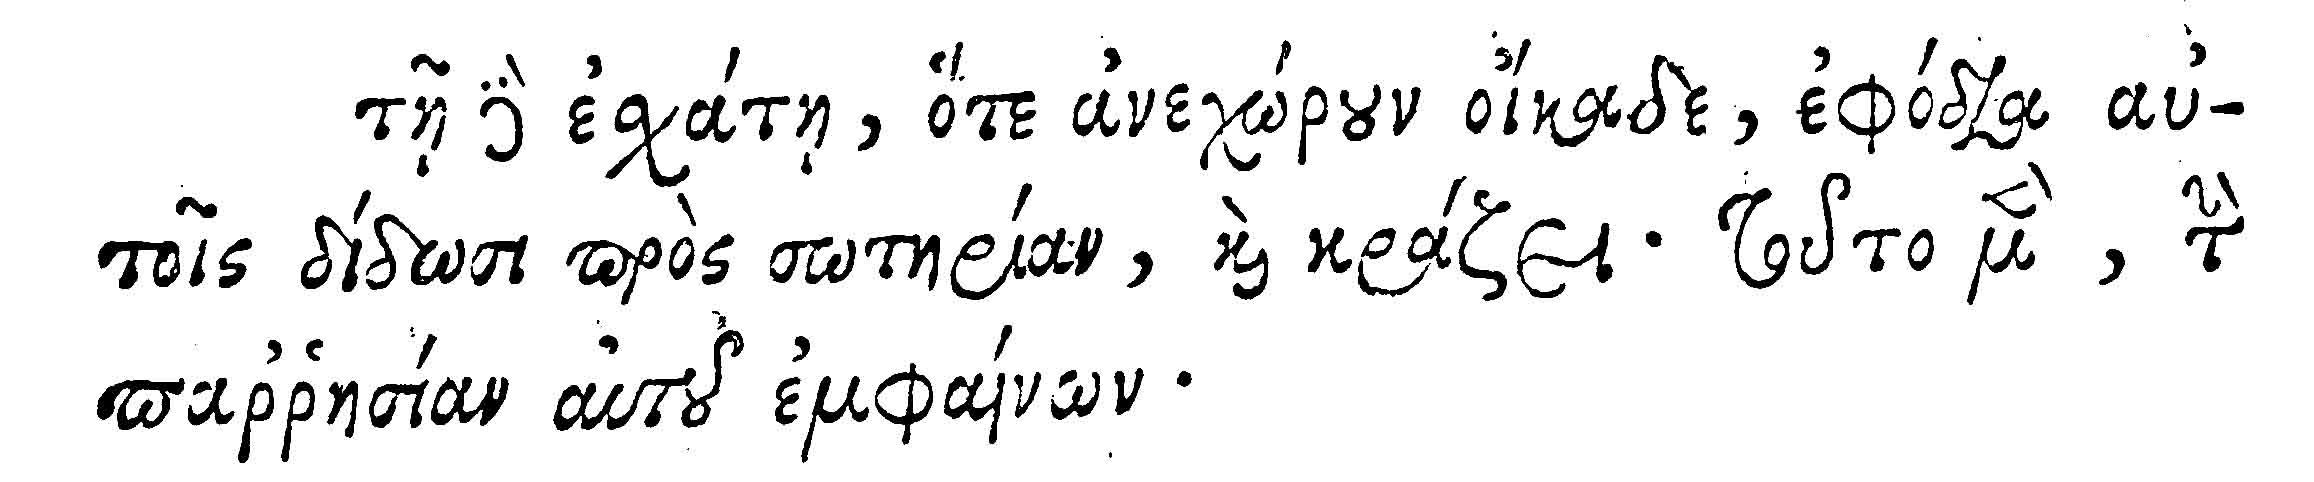 τῇ δὲ ἐσχάτῃ, ὅτε ἀνεχώρουν οἴκαδε, ἐφόδια αὐ-
τοῖς δίδωσι πρὸς σωτηρίαν, καὶ κράζει. Τοῦτο μὲν, τὴν
παῤῥησίαν αὐτοῦ ἐμφαίνων.